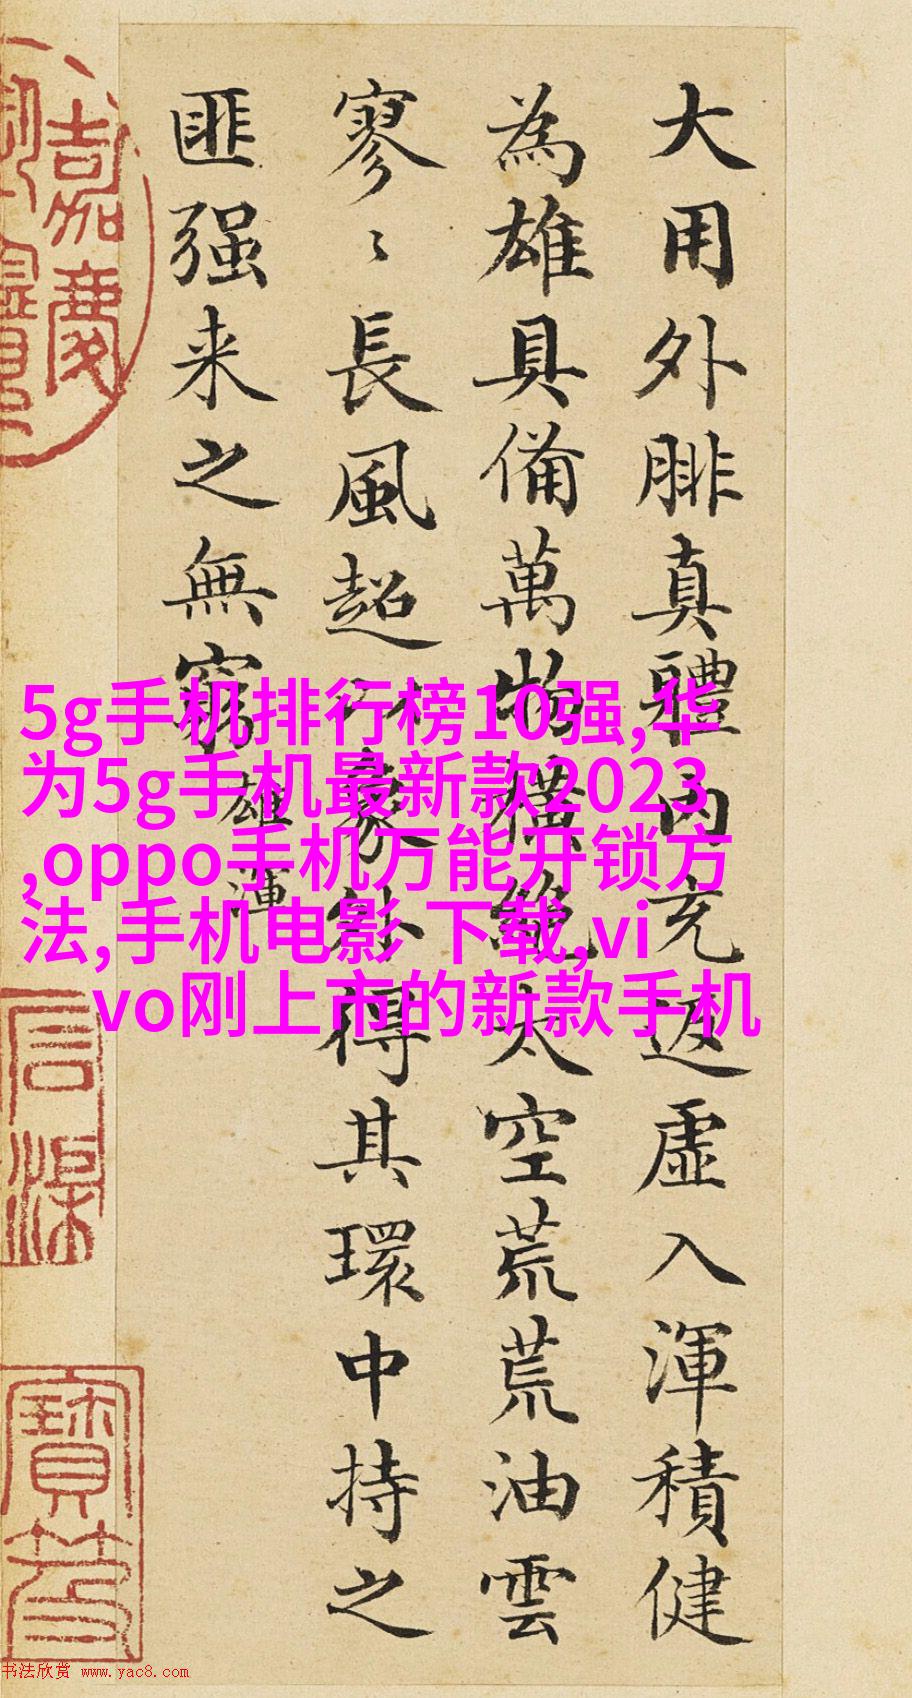 大用外腓真體内充返虛入渾積健
為雄具備萬物橫絕太空荒荒油雲
寥〻長風超以象外得其環中持之
匪强来之無窮
雄渾
嘉慶
5g手机排行榜10强,华
为5g手机最新款2023
,oppo手机万能开锁方
法,手机电影 下载,vi
vo刚上市的新款手机
书法欣赏 www.yac8.com